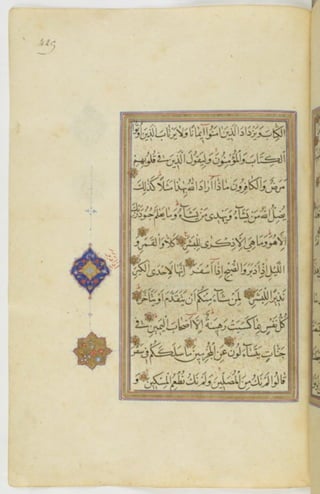 الكِتَابَ وَيَزْدَادَ الَّذِينَ آمَنُوا إِيمَانًا وَلَا يَرْتَابَ الَّذِينَ أُوتُوا
الْكِتَابَ وَالْمُؤْمِنُونَ وَلِيَقُولَ الَّذِينَ فِي قُلُوبِهِمْ
مَرَضٌ وَالْكَافِرُونَ مَاذَا أَرَادَ اللَّهُ بِهَذَا مَثَلًا كَذَلِكَ
يُضِلُّ اللَّهُ مَنْ يَشَاءُ وَيَهْدِي مَنْ يَشَاءُ وَمَا يَعْلَمُ جُنُودَ رَبِّكَ
إِلَّا هُوَ وَمَا هِيَ إِلَّا ذِكْرَى لِلْبَشَرِ كَلَّا وَالْقَمَرِ وَ
اللَّيْلِ إِذْ أَدْبَرَ وَالصُّبْحِ إِذَا أَسْفَرَ إِنَّهَا لَإِحْدَى الْكُبَرِ
نَذِيرًا لِلْبَشَرِ لِمَنْ شَاءَ مِنْكُمْ أَنْ يَتَقَدَّمَ أَوْ يَتَأَخَّرَ
كُلُّ نَفْسٍ بِمَا كَسَبَتْ رَهِينَةٌ إِلَّا أَصْحَابَ الْيَمِينِ فِي
جَنَّاتٍ يَتَسَاءَلُونَ عَنِ الْمُجْرِمِينَ مَا سَلَكَكُمْ فِي سَقَرَ
قَالُوا لَمْ نَكُ مِنَ الْمُصَلِّينَ وَلَمْ نَكُ نُطْعِمُ الْمِسْكِينَ وَ